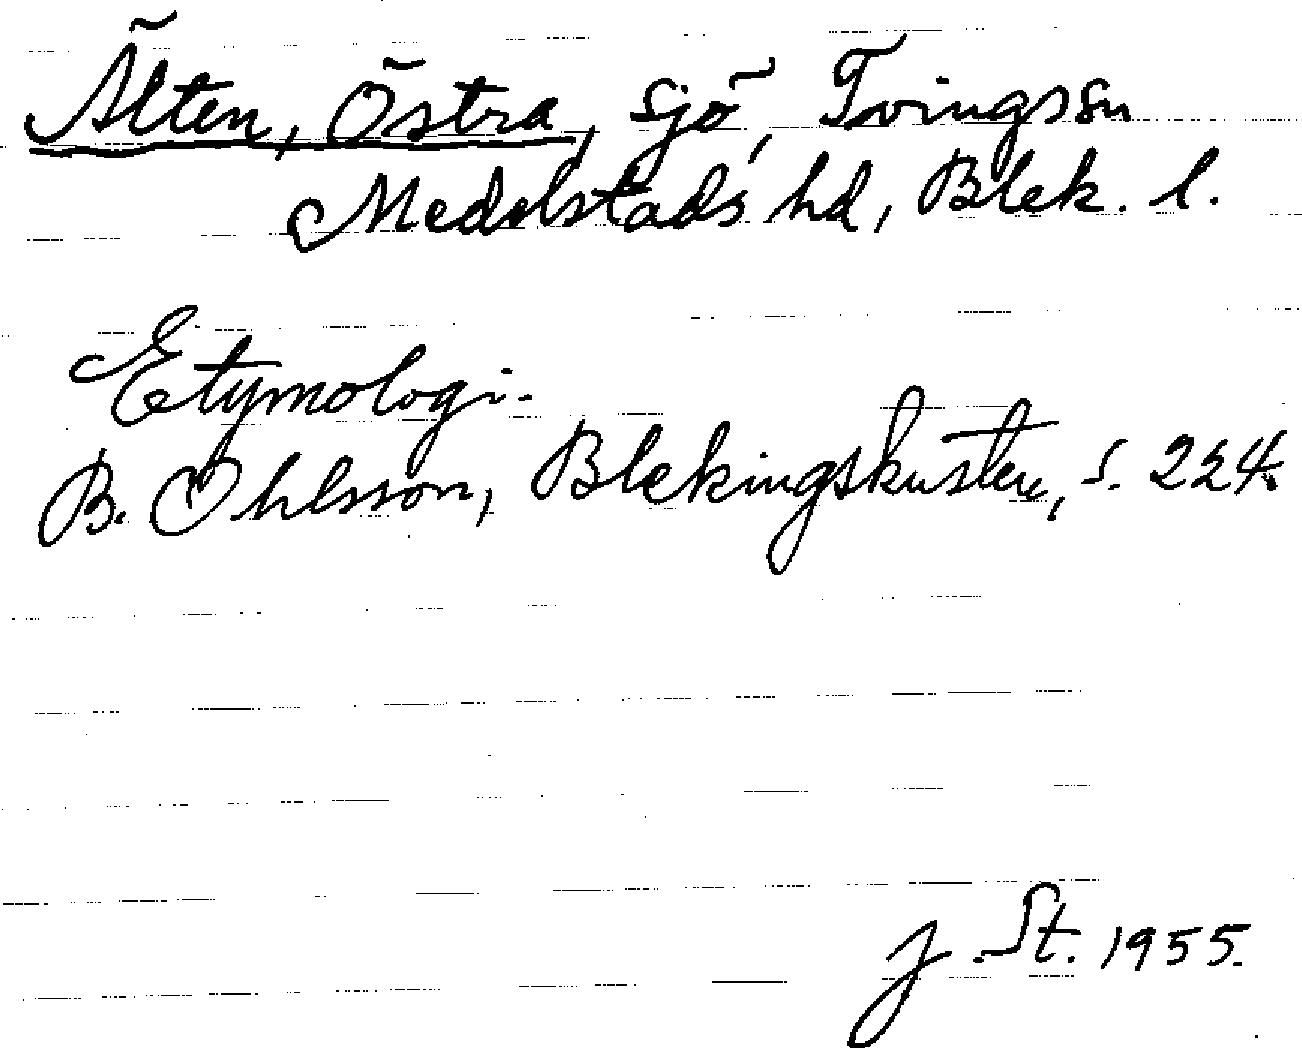 Älten, Östra, sjö, Tvings sn
Medelstads hd, Blek. l.
Etymologi.
B. Ohlsson, Blekingskusten, s. 224.
J. St. 1955.